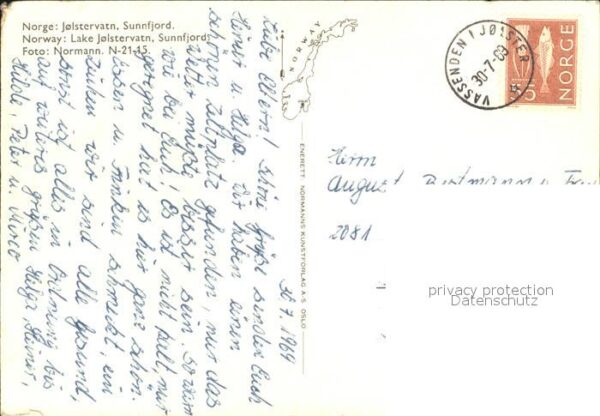 Norge: Jølstervatn, Sunnfjord.
Norway: Lake Jølstervatn, Sunnfjord.
Foto: Normann. N-21-15.
30.7.1969
Liebe Eltern! Schöne Grüße senden Euch
Heiner u. Helga. Wir haben einen
schönen Zeltplatz gefunden, nur das
Wetter müßte besser sein. So warm
wie bei Euch! Es ist nicht kalt, nur
geregnet hat es hier ganz schön.
Essen u. Trinken schmeckt, ein
Zeichen wir sind alle gesund,
sonst ist alles in Ordnung bis
auf weiteres grüßen Helga Heiner,
Hilde, Peter u. Mirco
NORWAY
ENERETT: NORMANNS KUNSTFORLAG A.S. OSLO
VASSENDEN I JØLSTER
30-7-69
NORGE
Herrn
August
2081
privacy protection
Datenschutz